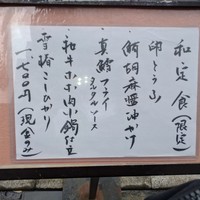 和定食（限定）
卵とう山
鯖胡麻醤油かけ
真鱈フライ
タルタルソース
和牛ホホ肉小鍋仕立
雪椿こしひかり
一、七〇〇円（現金のみ）